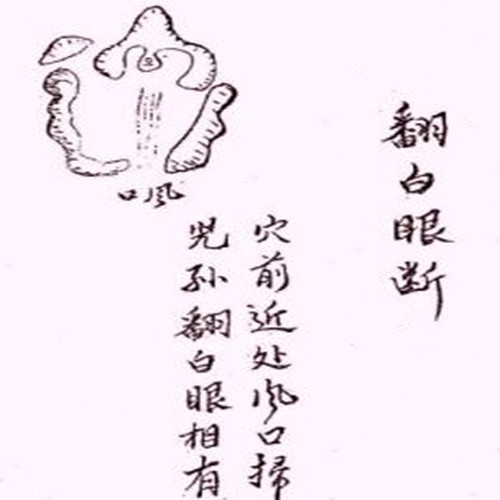 翻白眼断
穴前近处风口掃
兒孙翻白眼相有
口风